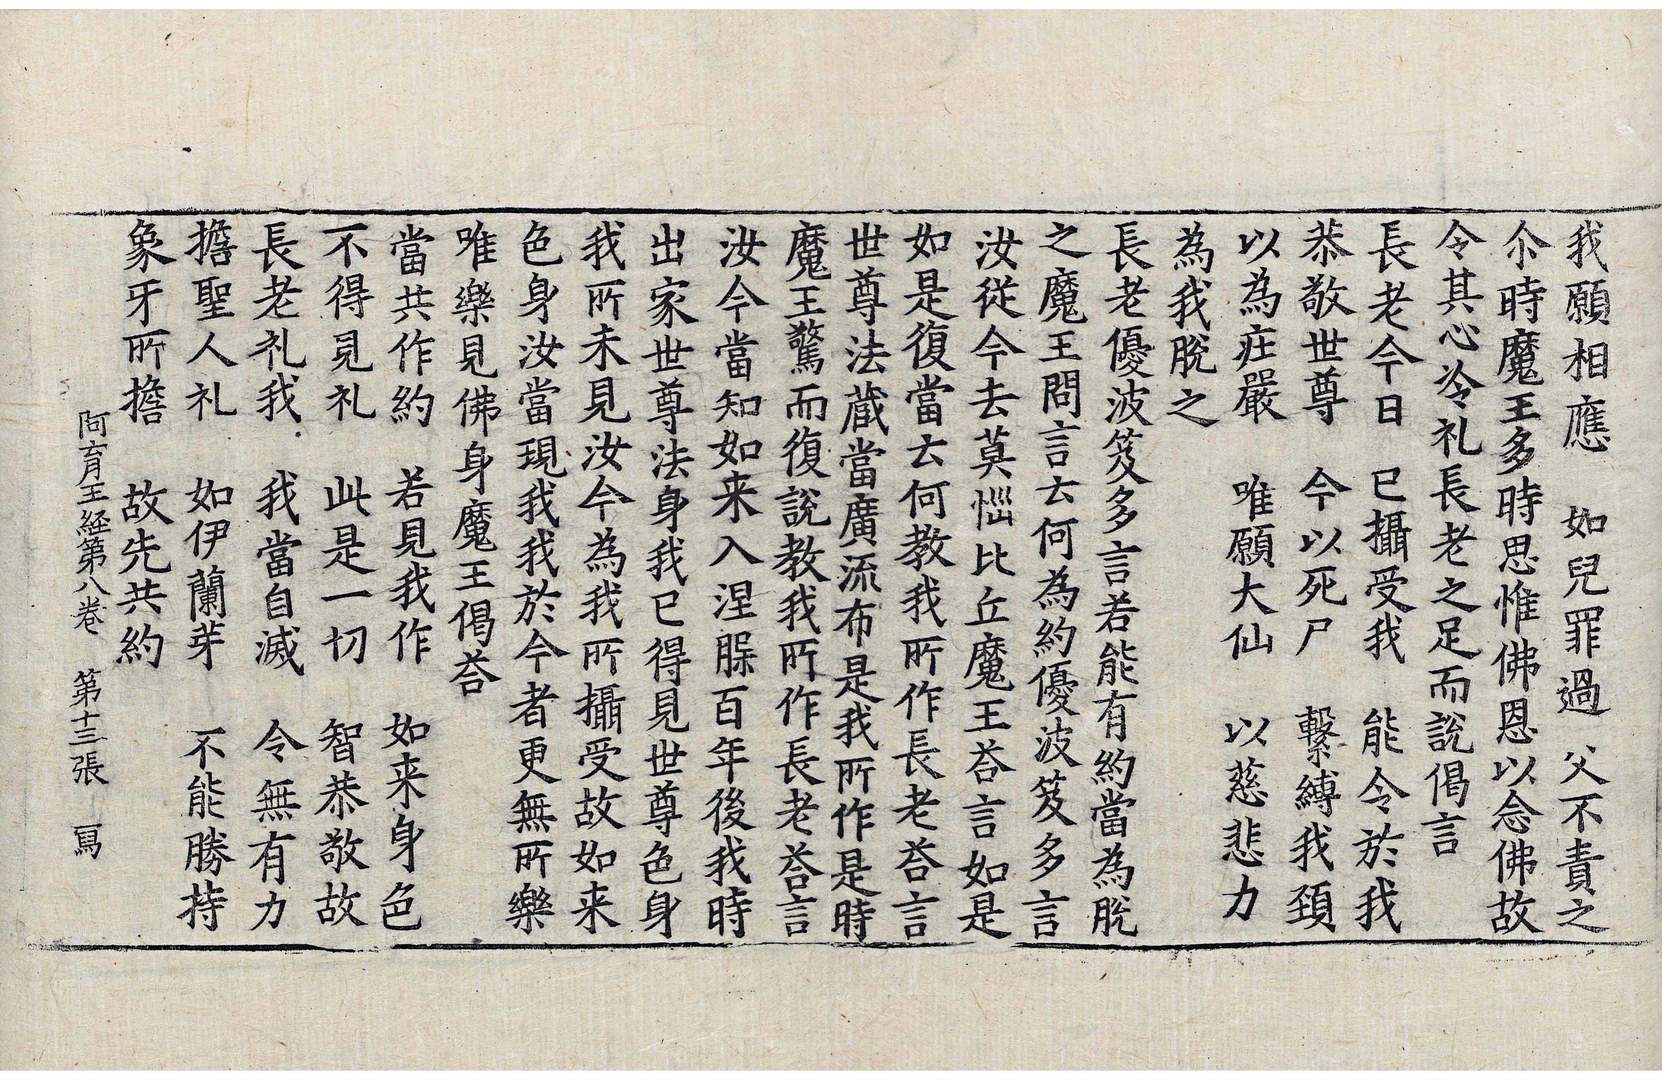 我願相應　如兒罪過　父不責之
尒時魔王多時思惟佛恩以念佛故
令其心冷礼長老之足而說偈言
長老今日　已攝受我　能令於我
恭敬世尊　今以死尸　繫縛我頚
以為庄嚴　唯願大仙　以慈悲力
為我脫之
長老優波笈多言若能有約當為脫
之魔王問言云何為約優波笈多言
汝從今去莫惱比丘魔王荅言如是
如是復當云何教我所作長老荅言
世尊法蔵當廣流布是我所作是時
魔王驚而復說教我所作長老荅言
汝今當知如来入涅槃百年後我時
出家世尊法身我已得見世尊色身
我所未見汝今為我所攝受故如来
色身汝當現我我於今者更無所樂
唯樂見佛身魔王偈荅
當共作約　若見我作　如来身色
不得見礼　此是一切　智恭敬故
長老礼我　我當自滅　令無有力
擔聖人礼　如伊蘭芽　不能勝持
象牙所擔　故先共約
阿育王経第八巻　第十三張　冩